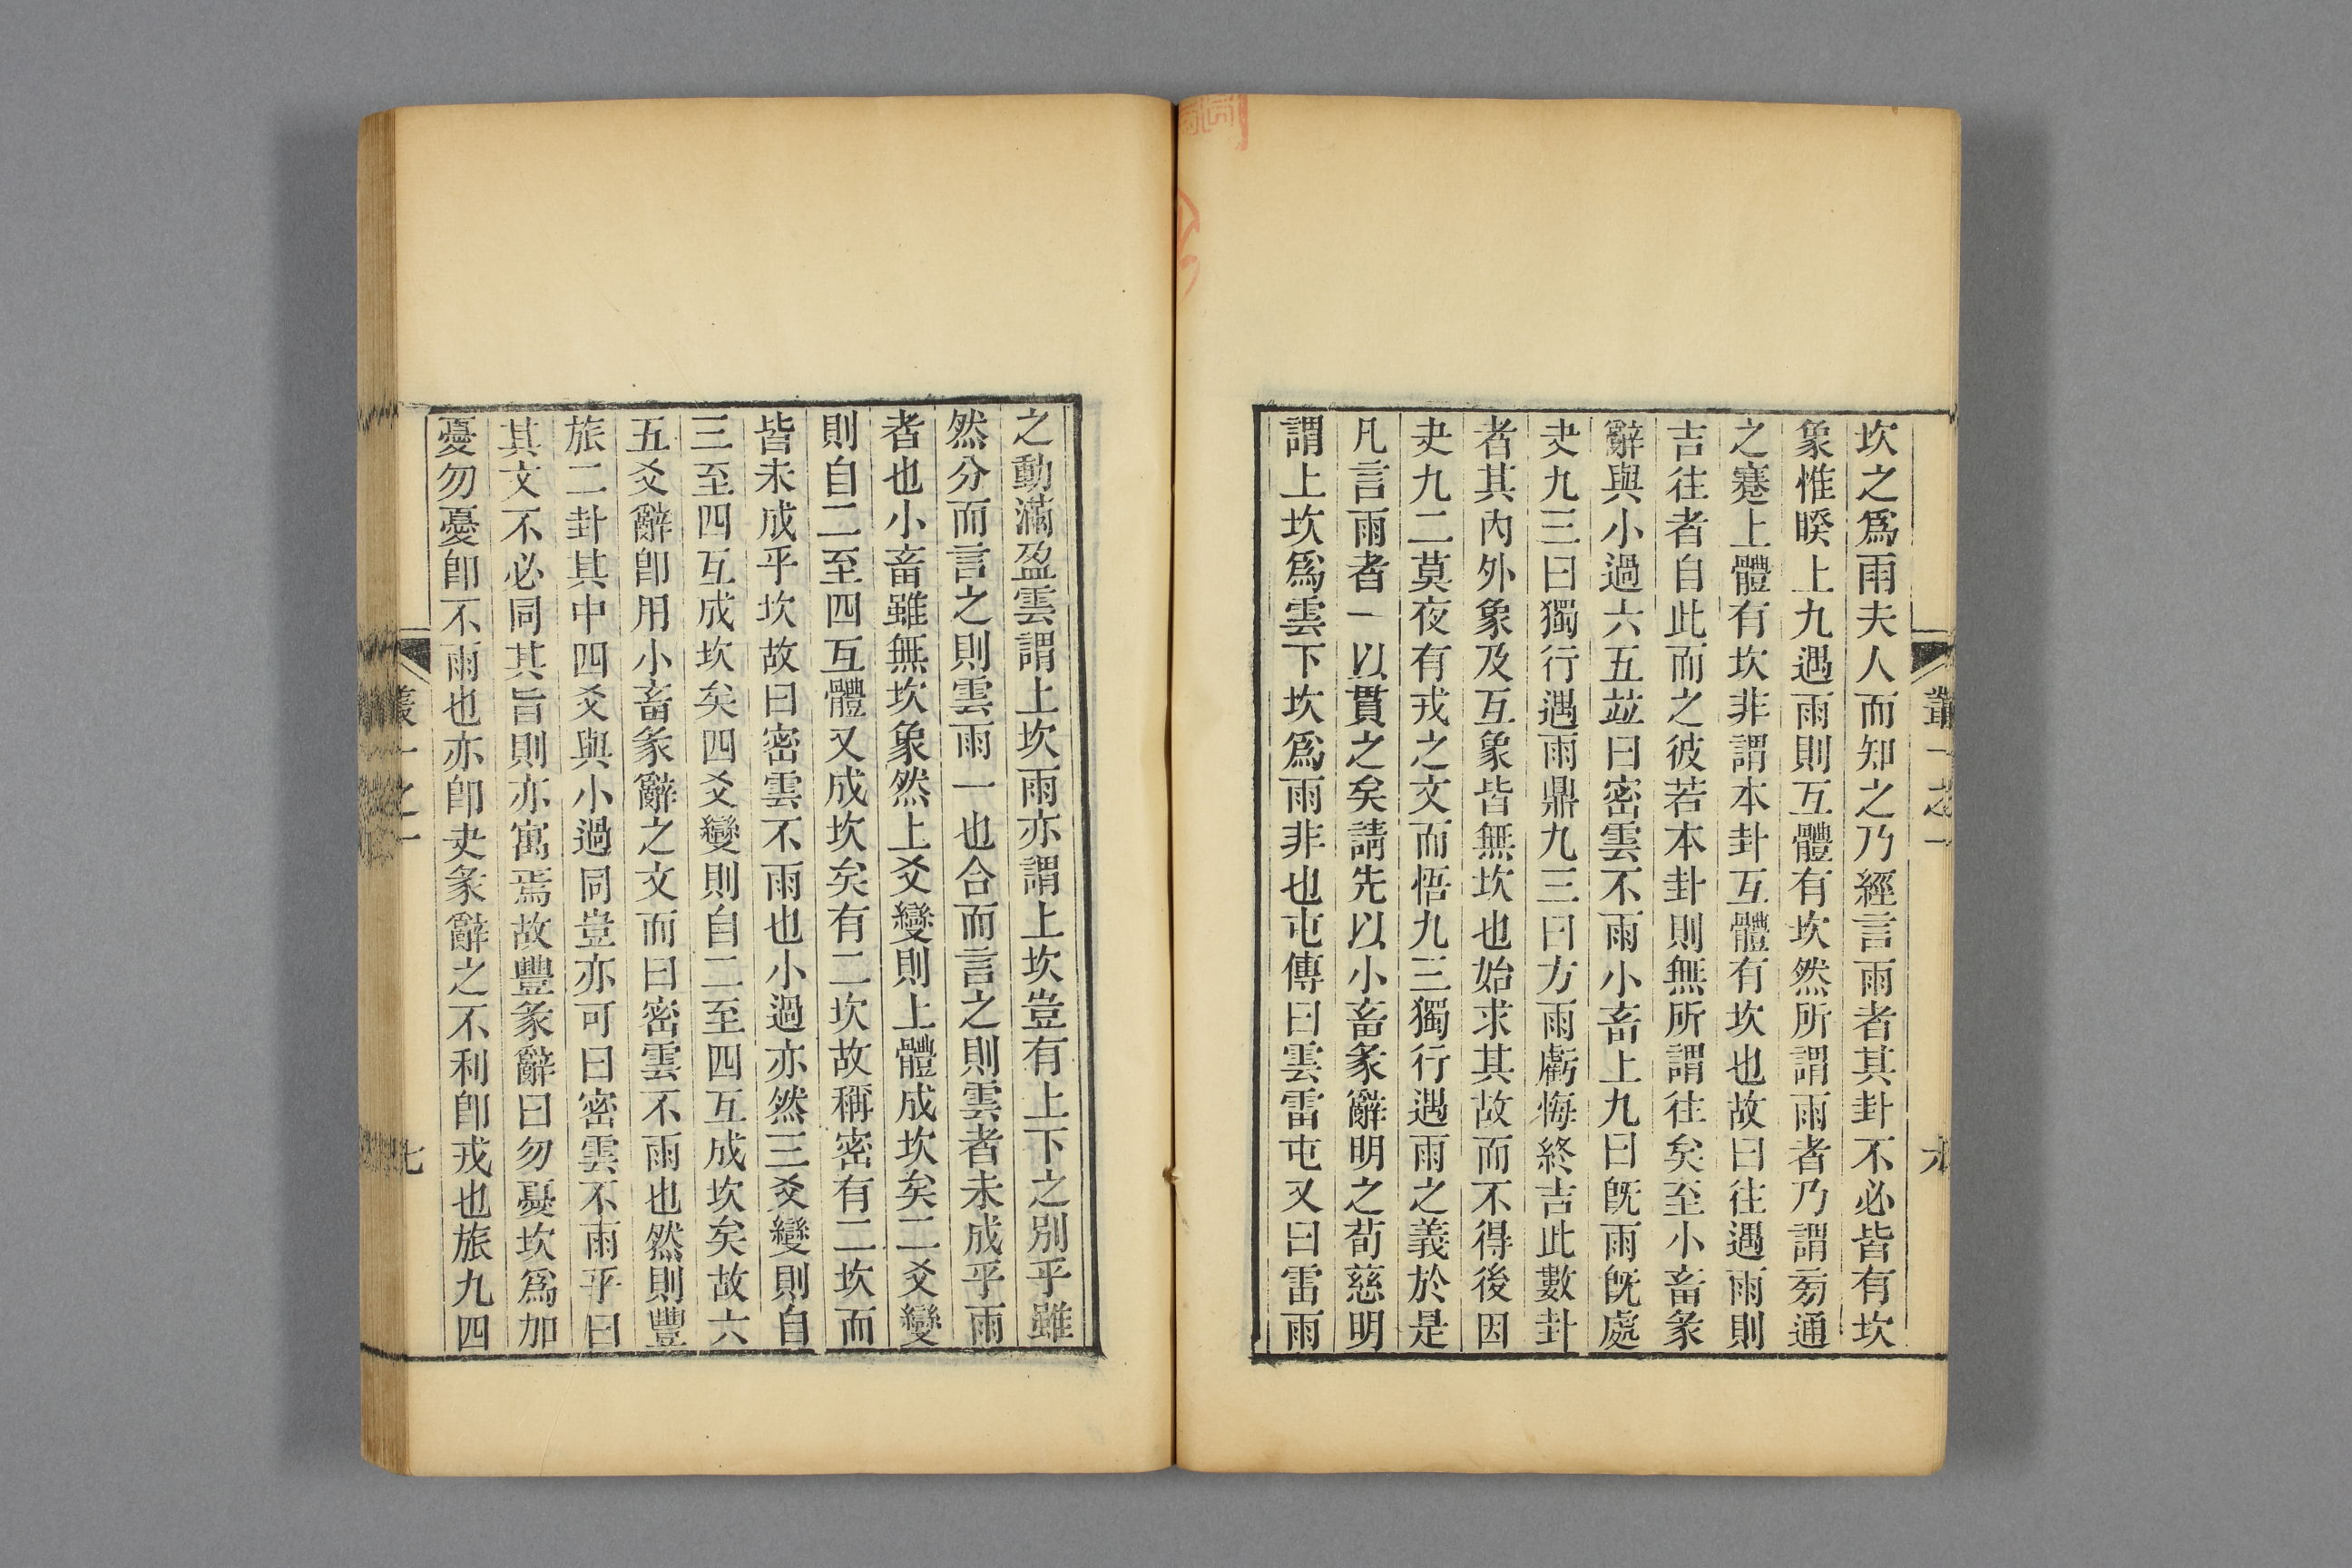 坎之爲雨夫人而知之乃經言雨者其卦不必皆有坎
象惟睽上九遇雨則互體有坎然所謂雨者乃謂旁通
之蹇上體有坎非謂本卦互體有坎也故曰往遇雨則
吉往者自此而之彼若本卦則無所謂往矣至小畜彖
辭與小過六五竝曰密雲不雨小畜上九曰旣雨旣處
夬九三曰獨行遇雨鼎九三曰方雨虧悔終吉此數卦
者其內外象及互象皆無坎也始求其故而不得後因
夬九二莫夜有戎之文而悟九三獨行遇雨之義於是
凡言雨者一以貫之矣請先以小畜彖辭明之荀慈明
謂上坎爲雲下坎爲雨非也屯傳曰雲雷屯又曰雷雨
之動滿盈雲謂上坎雨亦謂上坎豈有上下之別乎雖
然分而言之則雲雨一也合而言之則雲者未成乎雨
者也小畜雖無坎象然上爻變則上體成坎矣二爻變
則自二至四互體又成坎矣有二坎故稱密有二坎而
皆未成乎坎故曰密雲不雨也小過亦然三爻變則自
三至四互成坎矣四爻變則自二至四互成坎矣故六
五爻辭卽用小畜彖辭之文而曰密雲不雨也然則豐
旅二卦其中四爻與小過同豈亦可曰密雲不雨乎曰
其文不必同其旨則亦寓焉故豐彖辭曰勿憂坎爲加
憂勿憂卽不雨也亦卽夬彖辭之不利卽戎也旅九四
叢一之一
六
叢一之一
七